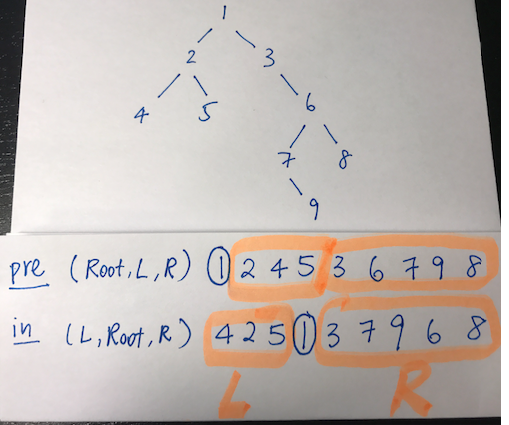 1
2 3
4 5 6
7 8
9
pre (Root, L, R) 1 2 4 5 3 6 7 9 8
in (L, Root, R) 4 2 5 1 3 7 9 6 8
L R